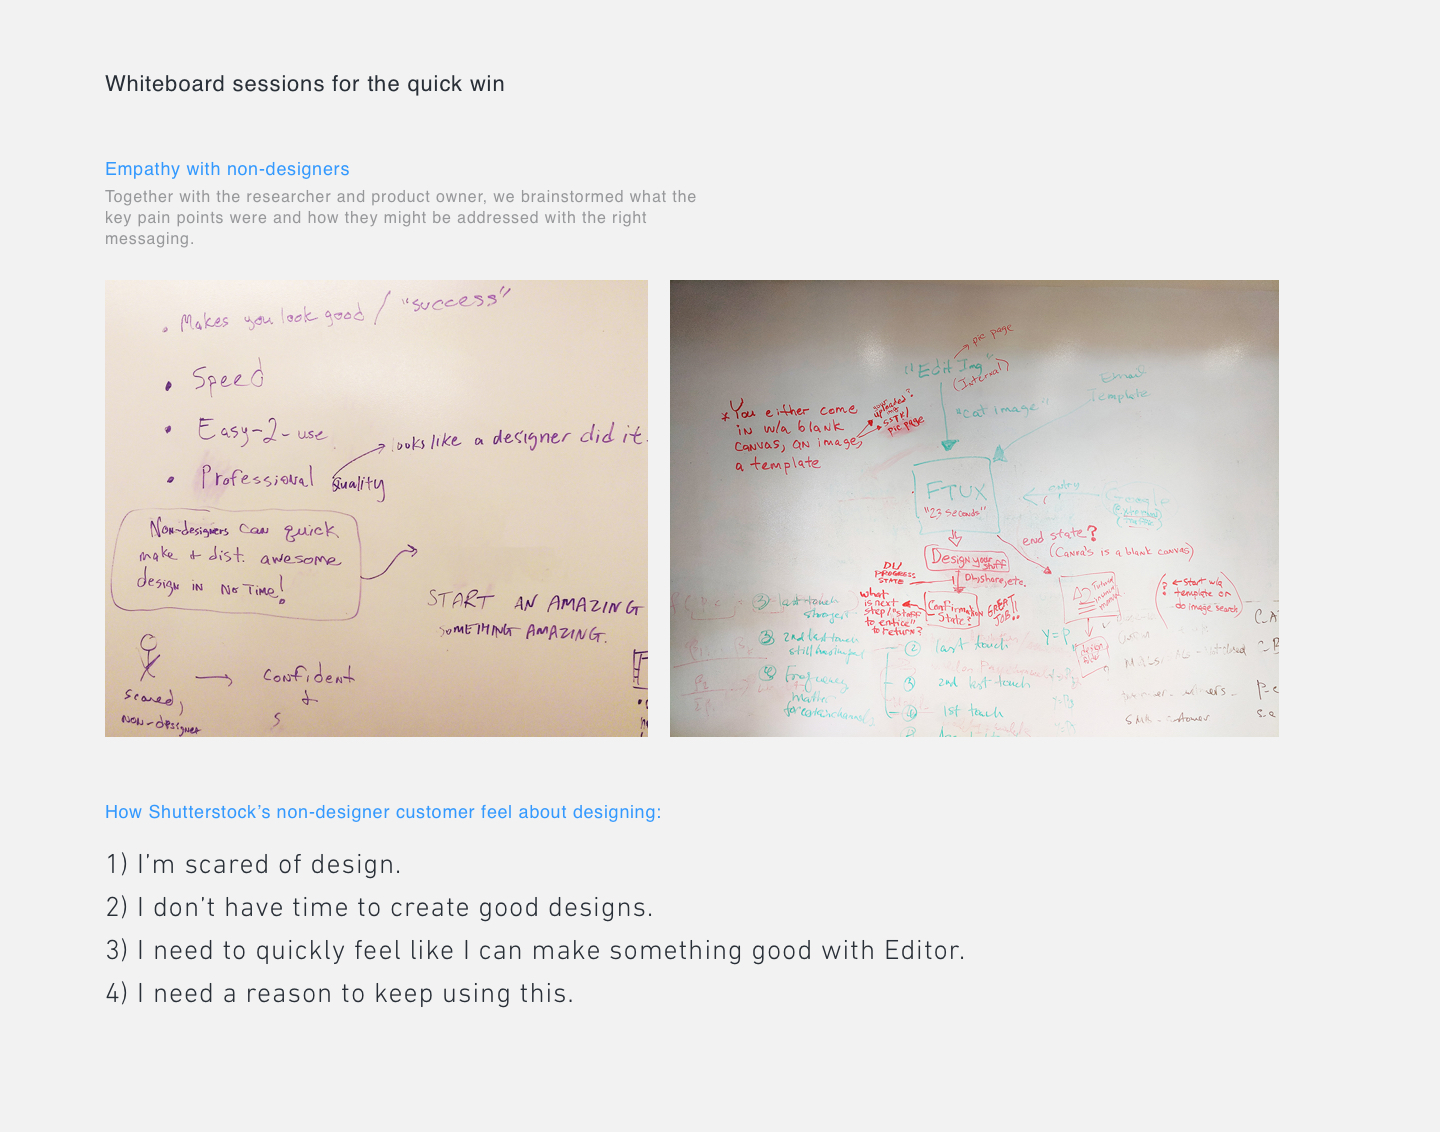 Whiteboard sessions for the quick win
Empathy with non-designers
Together with the researcher and product owner, we brainstormed what the
key pain points were and how they might be addressed with the right
messaging.
• Makes you look good / "success"
• Speed
• Easy-2-use
looks like a designer did it.
• Professional Quality
Non-designers can quick
make + dist. awesome
design in no time!
START AN AMAZING
SOMETHING AMAZING.
scared,
non-designer
confident
+
S
pic page
"Edit Img"
(Internal)
"cat image"
Email
Template
* You either come
in w/a blank
canvas, an image,
a template
uploaded?
SSTK/
pic page
FTUX
"23 seconds"
entry
end state?
(Canva's is a blank canvas)
Design your stuff
DL, share, etc.
DL/
PROGRESS
STATE
what
is next
step/"stuff
to entice"
to return?
Confirmation
State?
GREAT
JOB!!
← Start w/a
template or
do image search
Y=P
③ last touch
③ 2nd last touch
still has impact
④ Frequency
matter
for certain channels
② last touch
③ 2nd last touch
④ 1st touch
SMB - customer
How Shutterstock's non-designer customer feel about designing:
1) I'm scared of design.
2) I don't have time to create good designs.
3) I need to quickly feel like I can make something good with Editor.
4) I need a reason to keep using this.